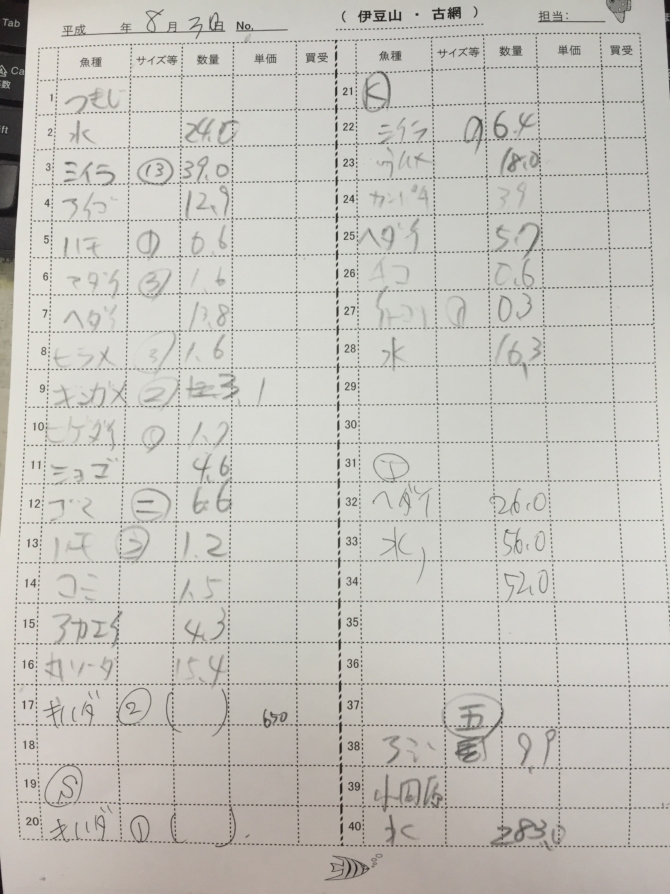 平成 年 8月 30日 No. ( 伊豆山 ・ 古網 ) 担当:
魚種 サイズ等 数量 単価 買受
1 つきじ
2 水 24.0
3 ミイラ ⑬ 39.0
4 アイゴ 12.9
5 ハモ ① 0.6
6 マダイ ③ 1.6
7 ヘダイ 13.8
8 ヒラメ ③ 1.6
9 キンガメ ② 3.1
10 ヒゲダイ ① 1.7
11 ショゴ 4.6
12 ゴマ 二 6.6
13 ハモ ② 1.2
14 コミ 1.5
15 アカエイ 4.3
16 カソーダ 15.4
17 キハダ ② ( ) 650
18
19 S
20 キハダ ① ( )
魚種 サイズ等 数量 単価 買受
21 K
22 ミイラ ① 6.4
23 ウルメ 18.0
24 カンパチ 3.9
25 ヘダイ 5.7
26 0.6
27 ① 0.3
28 水 16.3
29
30
31
32 ヘダイ 26.0
33 水 56.0
34 52.0
35
36
37 五
38 9.9
39 小田原
40 水 283.0